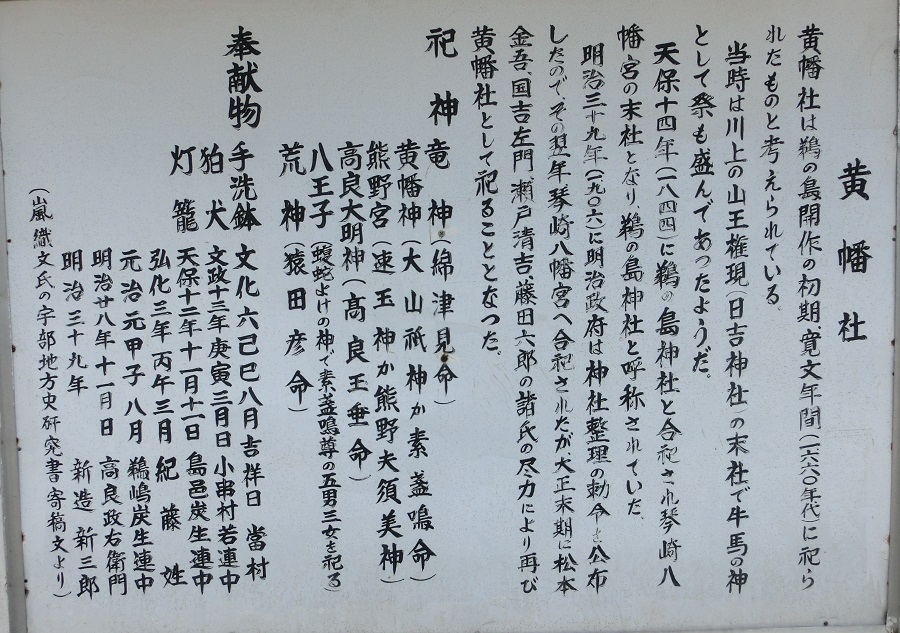 黄幡社
黄幡社は鵜の島開作の初期、寛文年間(一六六〇年代)に祀ら
れたものと考えられている。
当時は川上の山王権現(日吉神社)の末社で牛馬の神
として祭も盛んであったようだ。
天保十四年(一八四四)に鵜の島神社と合祀され琴崎八
幡宮の末社となり、鵜の島神社と呼称されていた。
明治三十九年(一九〇六)に明治政府は神社整理の勅令を公布
したので、その翌年琴崎八幡宮へ合祀されたが、大正末期に松本
金吾、国吉左門、瀬戸清吉、藤田六郎の諸氏の尽力により再び
黄幡社として祀ることとなった。
祀神 竜神(綿津見命)
黄幡神(大山祇神か素盞鳴命)
熊野宮(速玉神か熊野夫須美神)
高良大明神(高良玉垂命)
八王子(蝗蛇よけの神で素盞鳴尊の五男三女を祀る)
荒神(猿田彦命)
奉献物 手洗鉢 文化六己巳八月吉祥日 當村
狛犬 文政十三年庚寅三月日 小串村若連中
灯籠 天保十二年十一月十一日 島邑炭生連中
弘化三年丙午三月 紀藤姓
元治元甲子八月 鵜嶋炭生連中
明治廿八年十一月日 高良政右衛門
明治三十九年 新造新三郎
(山風織文氏の宇部地方史研究書寄稿文より)